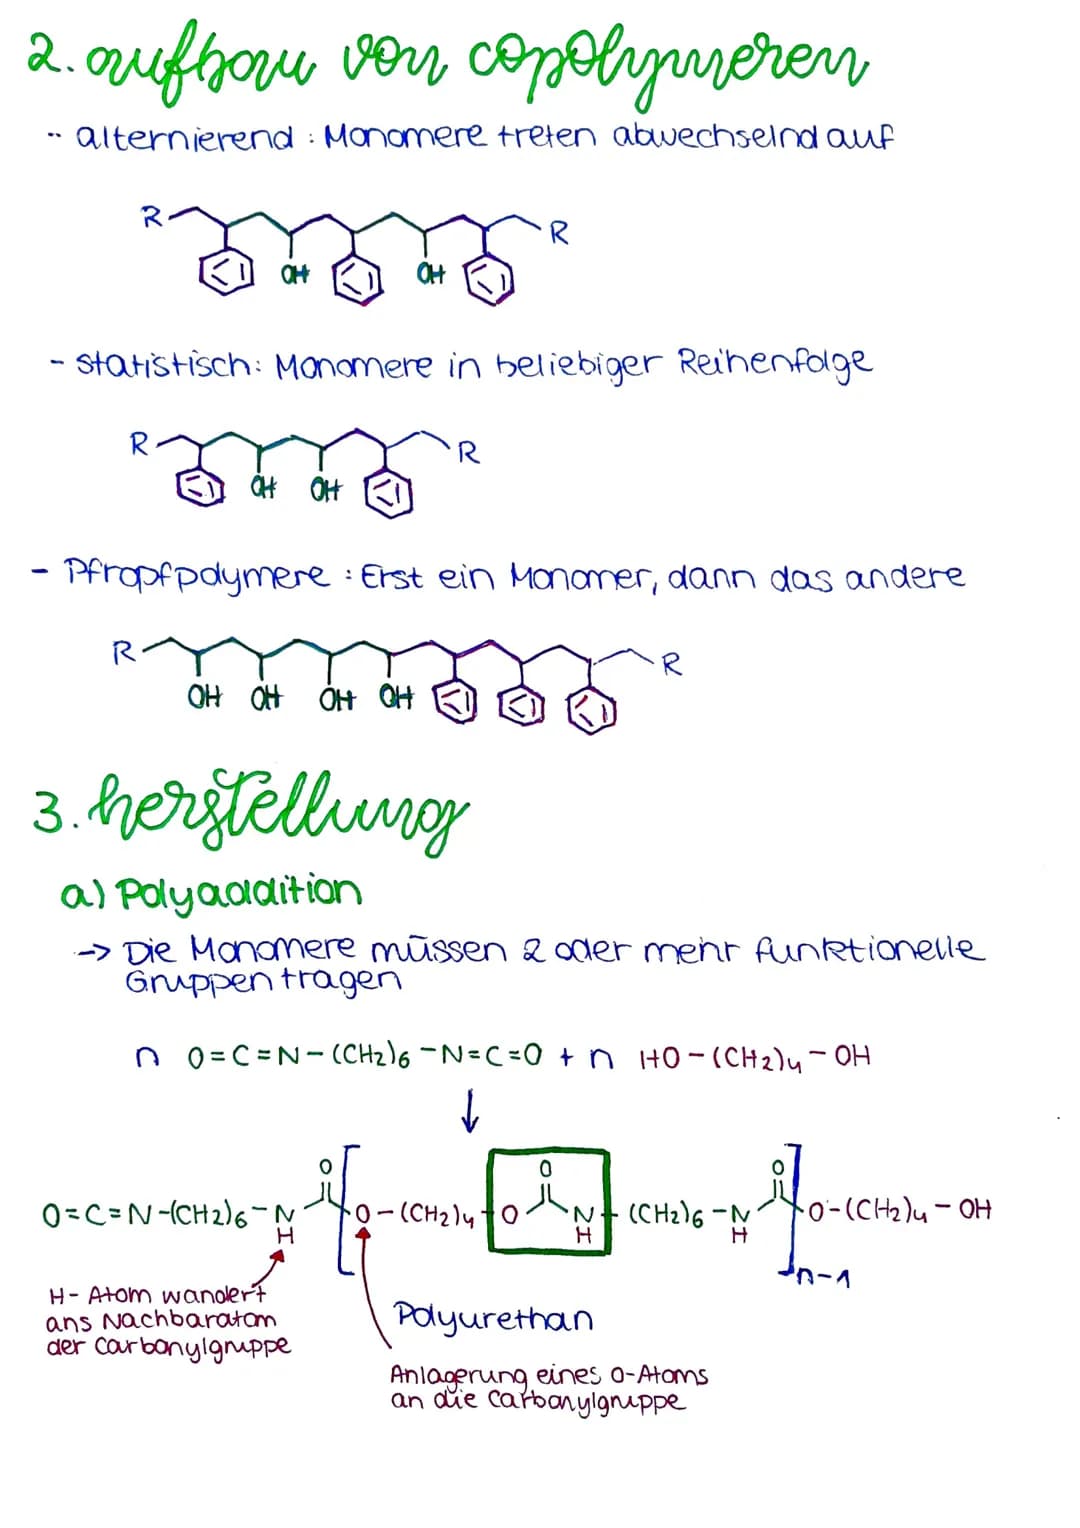 2. aufbau von copolymeren
- alternierend : Monomere treten abwechselnd auf
R R
OH OH
- statistisch: Monomere in beliebiger Reihenfolge
R R
OH OH
- Pfropfpolymere : Erst ein Monomer, dann das andere
R R
OH OH OH OH
3. herstellung
a) Polyaddition
-> Die Monomere müssen 2 oder mehr funktionelle
Gruppen tragen
n O=C=N-(CH2)6-N=C=O + n HO-(CH2)4-OH
↓
O O O
O=C=N-(CH2)6-N [ O-(CH2)4-O N-(CH2)6-N ] O-(CH2)4-OH
H H H
n-1
H-Atom wandert
ans Nachbaratom
der Carbonylgruppe
Polyurethan
Anlagerung eines O-Atoms
an die Carbonylgruppe